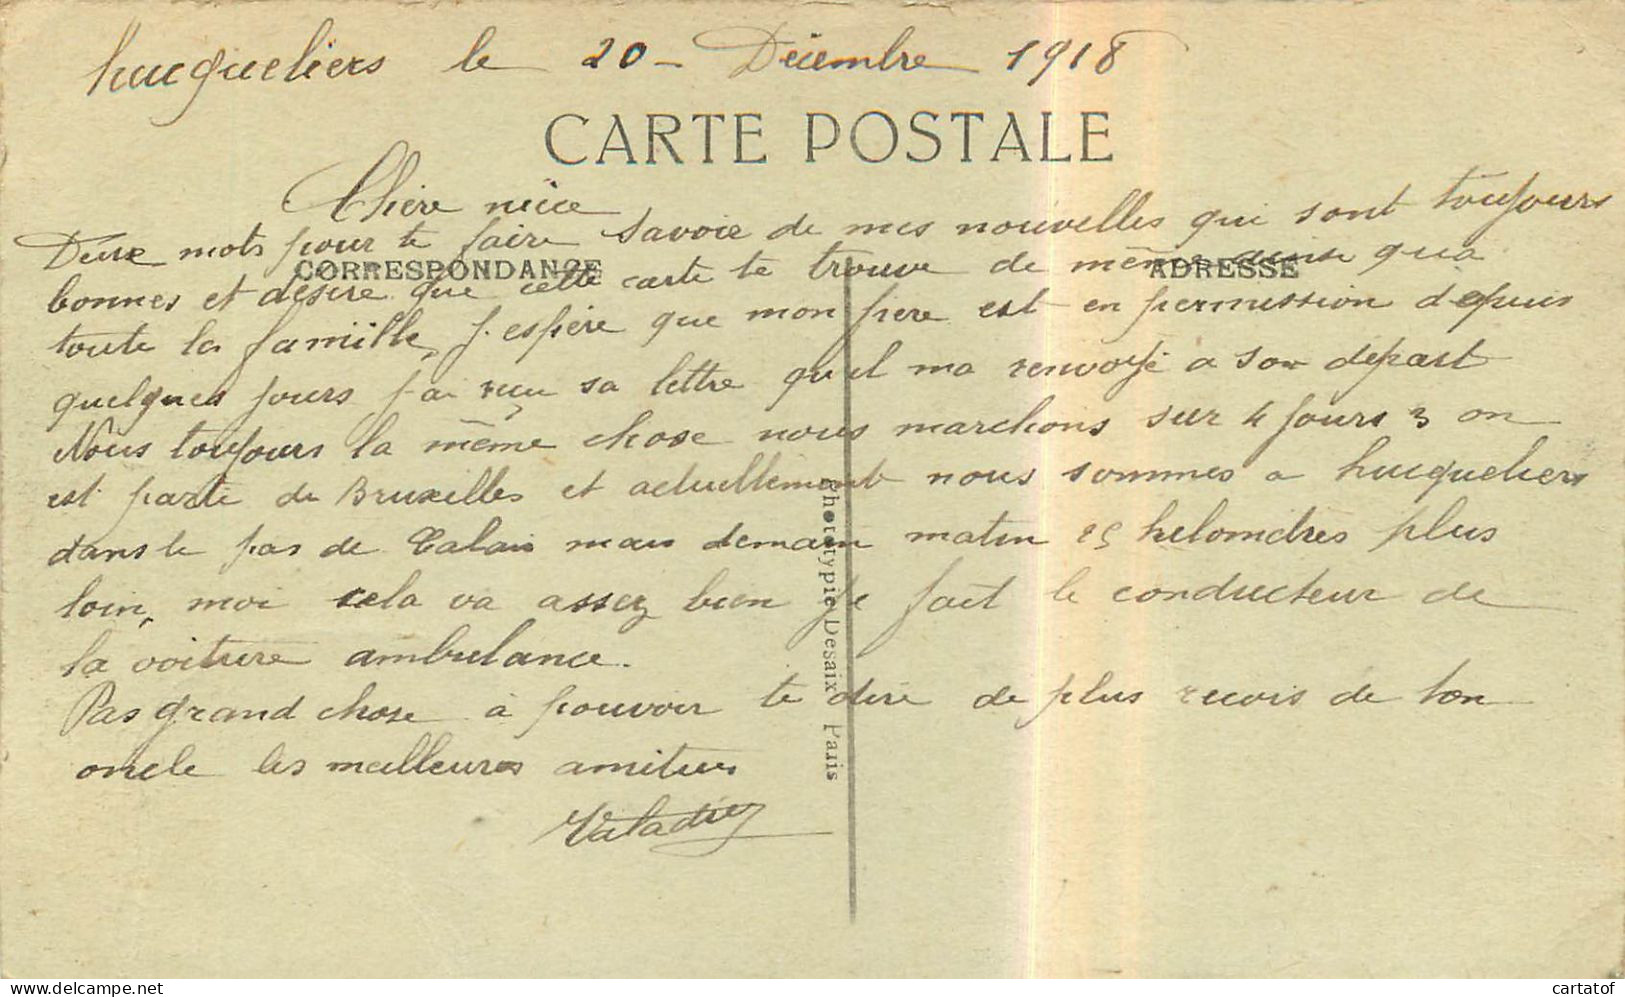 hucqueliers le 20 - Décembre 1918
CARTE POSTALE
Chère nièce
Deux mots pour te faire savoir de mes nouvelles qui sont toujours
CORRESPONDANCE
ADRESSE
bonnes et désire que cette carte te trouve de même ainsi qua
toute la famille, j. espère que mon père est en permission depuis
quelques jours j'ai reçu sa lettre qu'il ma renvoyé a son départ
Nous toujours la même chose nous marchons sur 4 jours 3 on
est parti de Bruxelles et actuellement nous sommes a hucqueliers
dans le pas de Calais mais demain matin 25 kilomètres plus
loin, moi cela va assez bien je fait le conducteur de
la voiture ambulance.
Pas grand chose à pouvoir te dire de plus recois de ton
oncle les meilleures amitiés
Phototypie Desaix Paris
cartatof